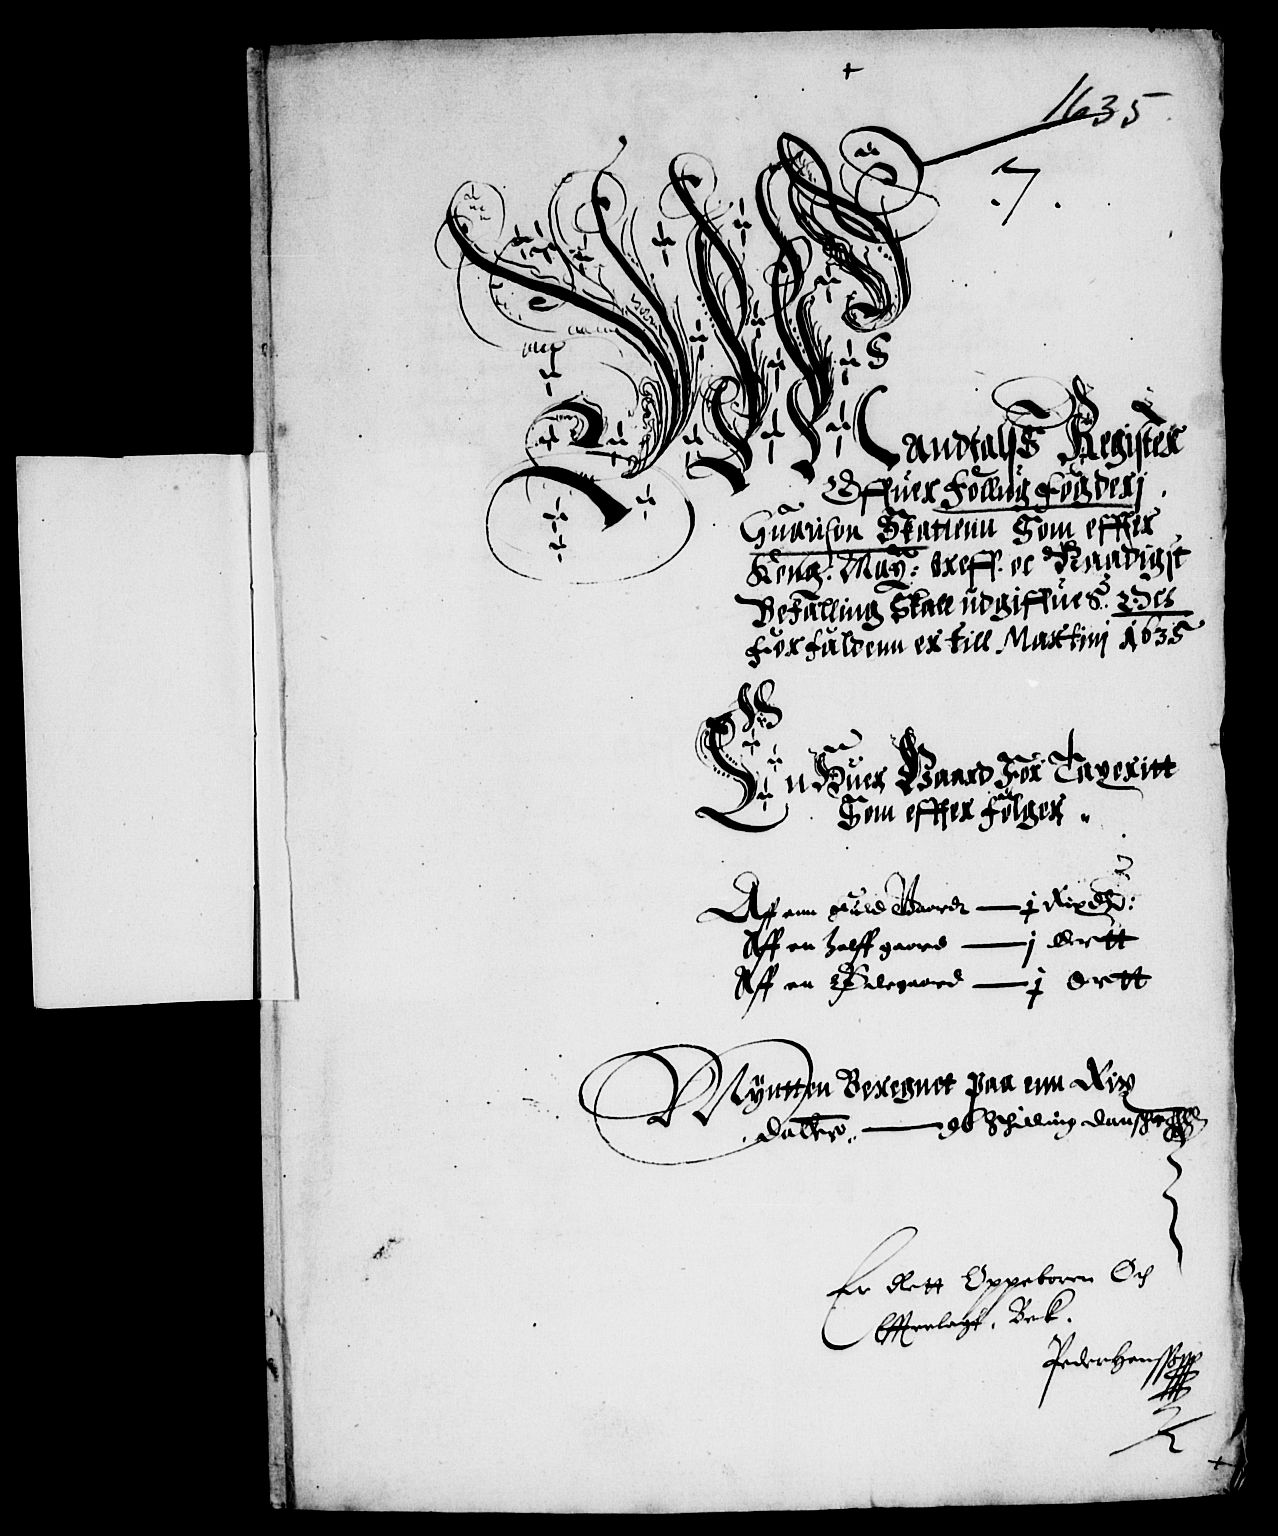 1635
7.
Mandtals Register
Offuer Follug Fogderj
Guarison Skattenn Som effter
Kong: May: breff. oc Naadigst
Befalling Skall udgiffues. Des
forfaldenn er till Martinj 1635
En Huer Gaard For Tageritt
Som effter Følger.
Aff enn guld Gaard — j Rixdr:
Aff en halff gaard — j ortt
Aff en Ødegaard — j ortt
Myntten Beregnet paa enn Rix
daller. — 96 Schilling dansche
Er dett Oppeboren Och
Bek.
Peder Hanssøn